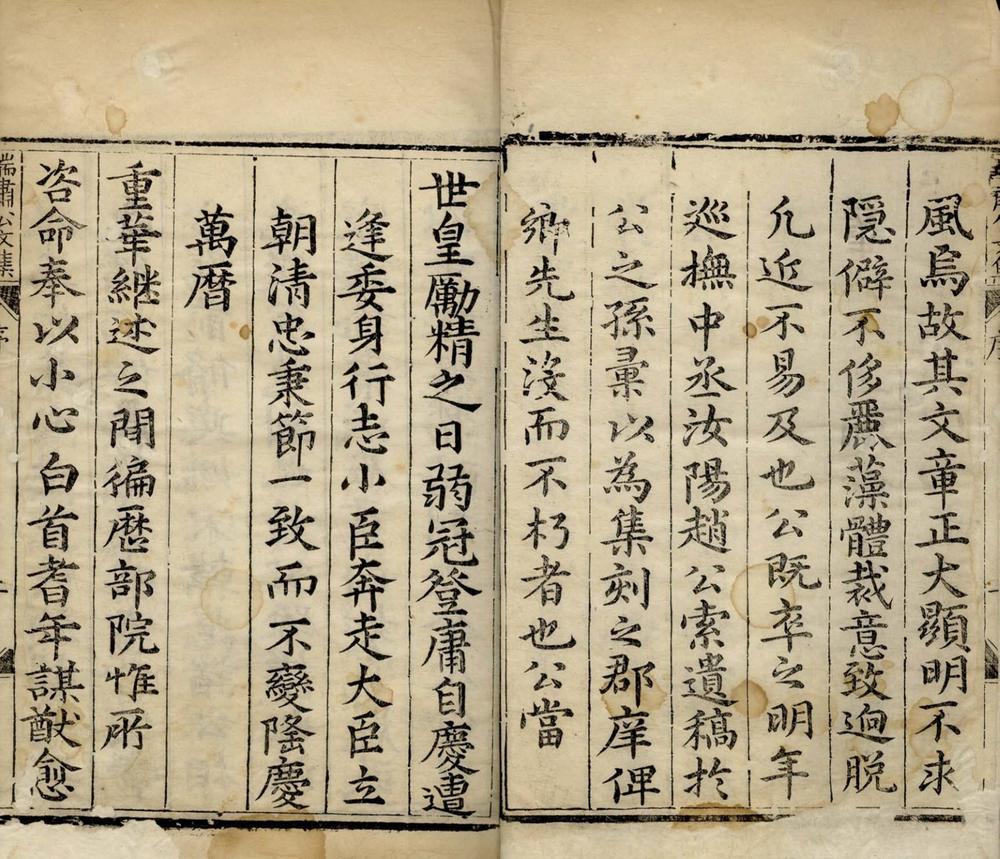 風焉故其文章正大顯明不求
隱僻不侈麗藻體裁意致逈脫
凢近不易及也公既卒之明年
巡撫中丞汝陽趙公索遺稿扵
公之孫彙以為集刻之郡庠俾
鄉先生沒而不朽者也公當
世皇勵精之日弱冠登庸自慶遭
逢委身行志小臣奔走大臣立
朝清忠秉節一致而不變隆慶
萬曆
重華継述之間徧歷部院惟所
咨命奉以小心白首耆年謀猷愈
端肅公文集
序